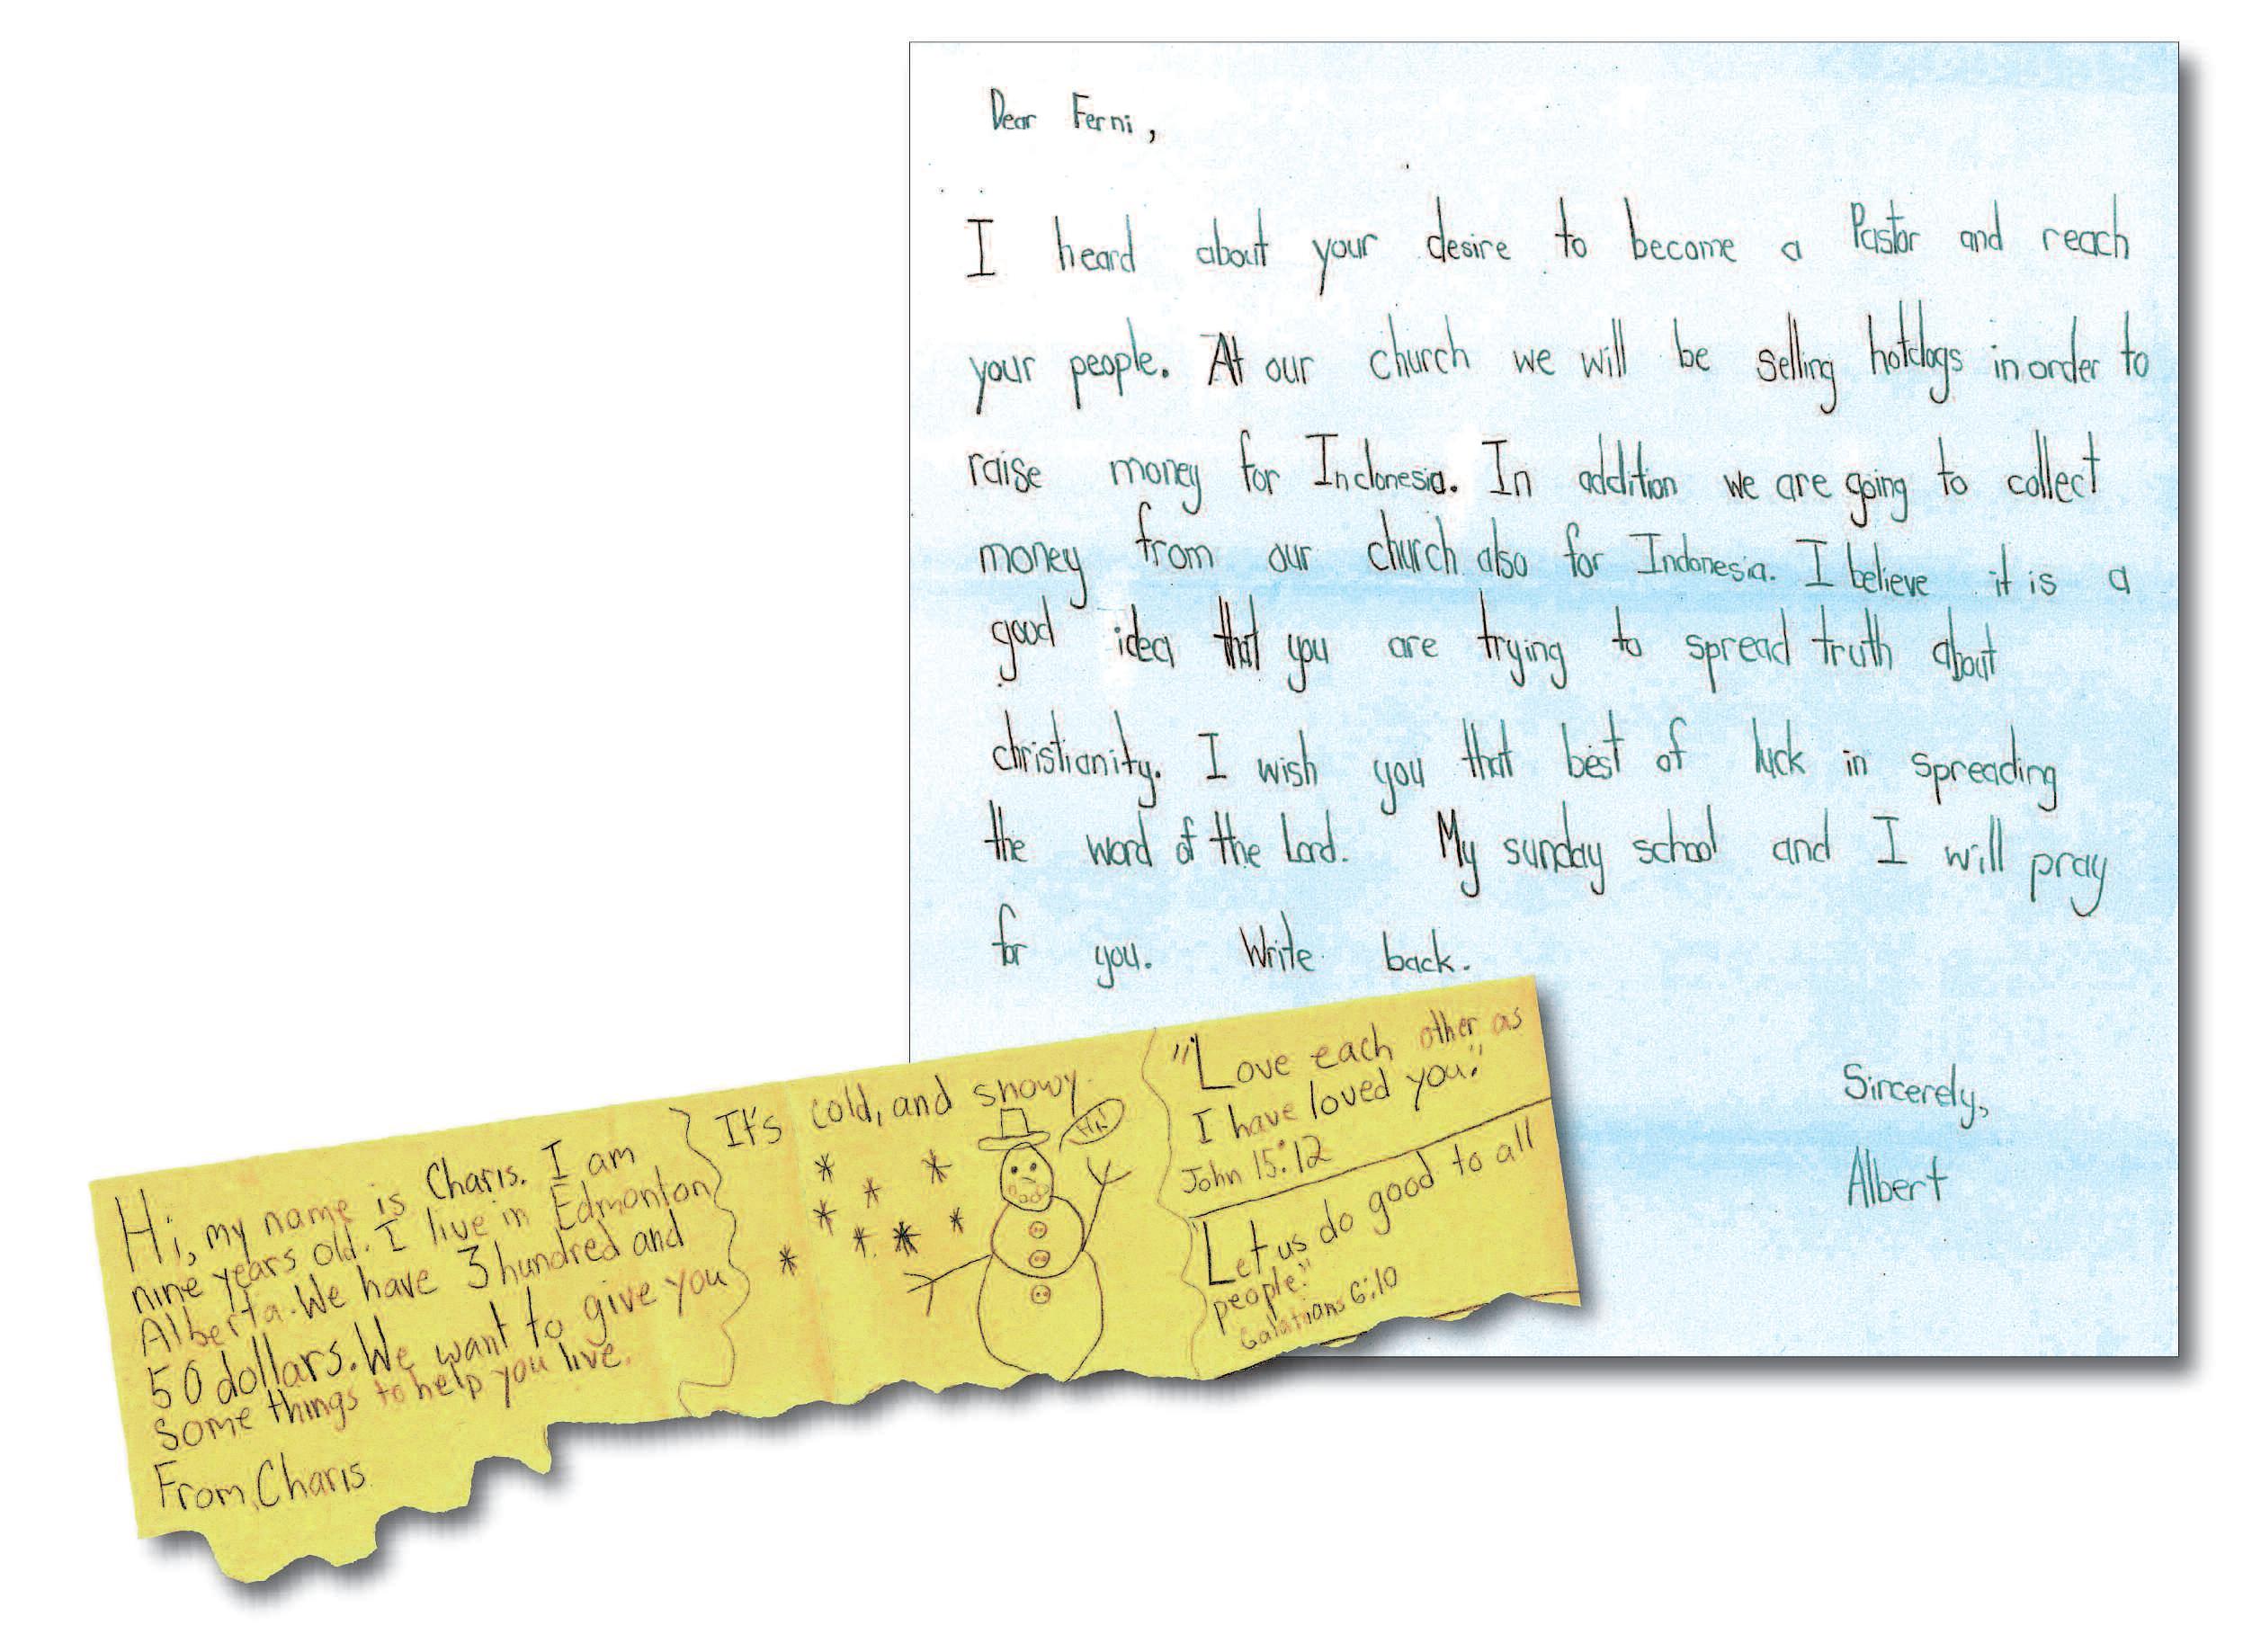 Dear Ferni,
I heard about your desire to become a Pastor and reach
your people. At our church we will be selling hotdogs in order to
raise money for Indonesia. In addition we are going to collect
money from our church also for Indonesia. I believe it is a
good idea that you are trying to spread truth about
christianity. I wish you that best of luck in spreading
the word of the Lord. My sunday school and I will pray
for you. Write back.
Sincerely,
Albert
Hi, my name is Charis. I am
nine years old. I live in Edmonton
Alberta. We have 3 hundred and
50 dollars. We want to give you
some things to help you live.
From, Charis
It's cold, and snowy.
Hi!
"Love each other as
I have loved you."
John 15:12
Let us do good to all
people."
Galatians 6:10